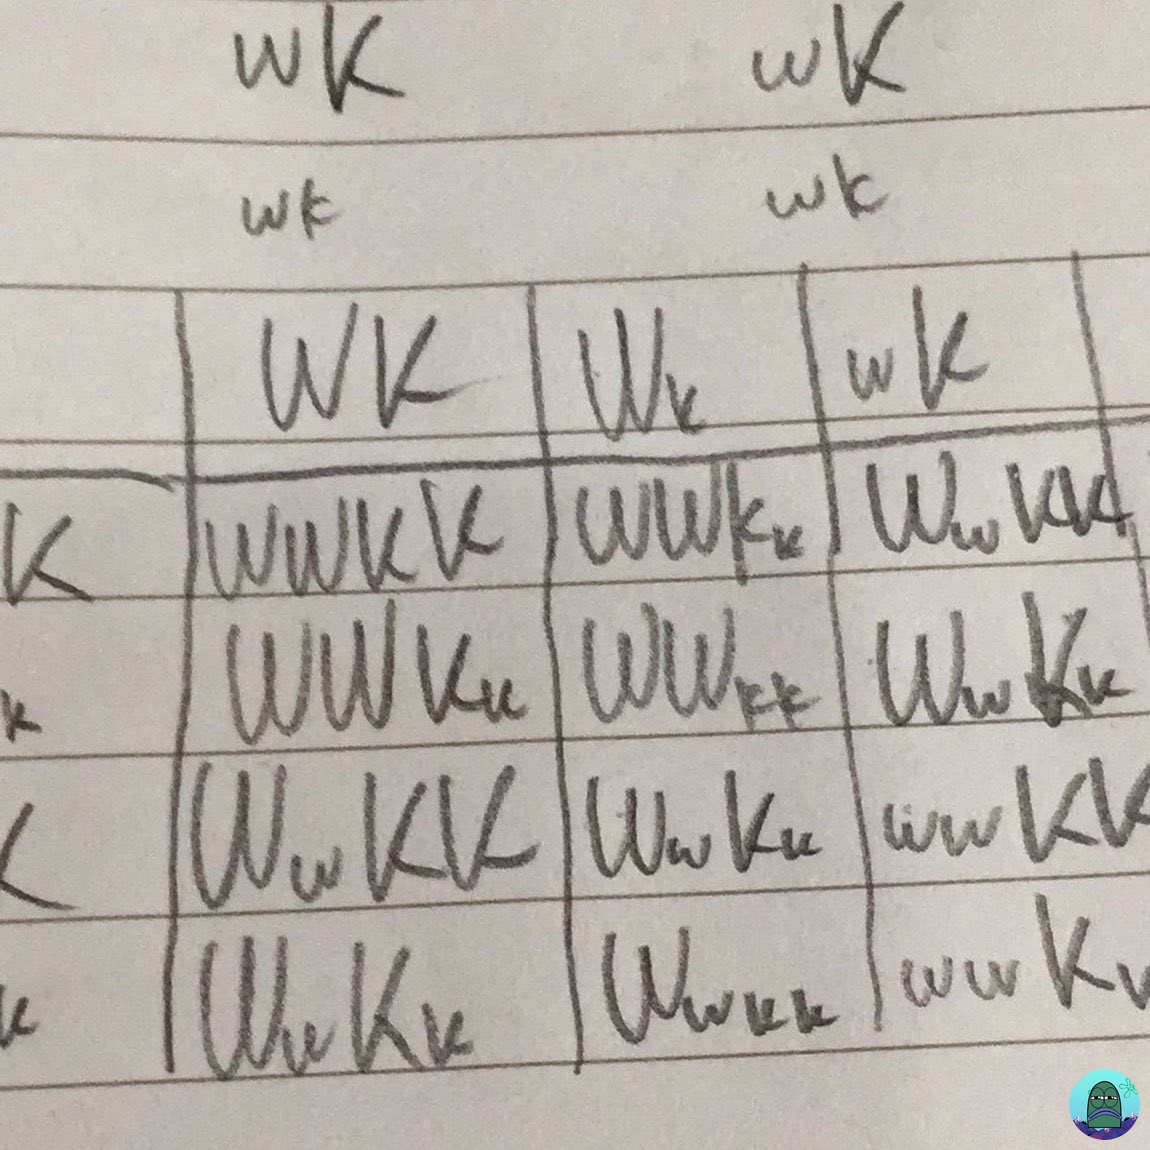 wK wK
wk wk
WK Wk wK
K WWKK WWKk WwKK
k WWKk WWkk WwKk
K WwKK WwKk wwKK
k WwKk Wwkk wwKk